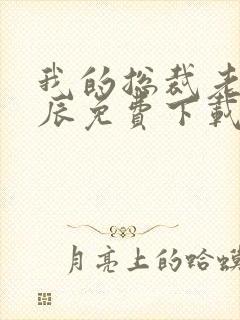 我的总裁老
辰免费下载
月亮上的蛤蟆